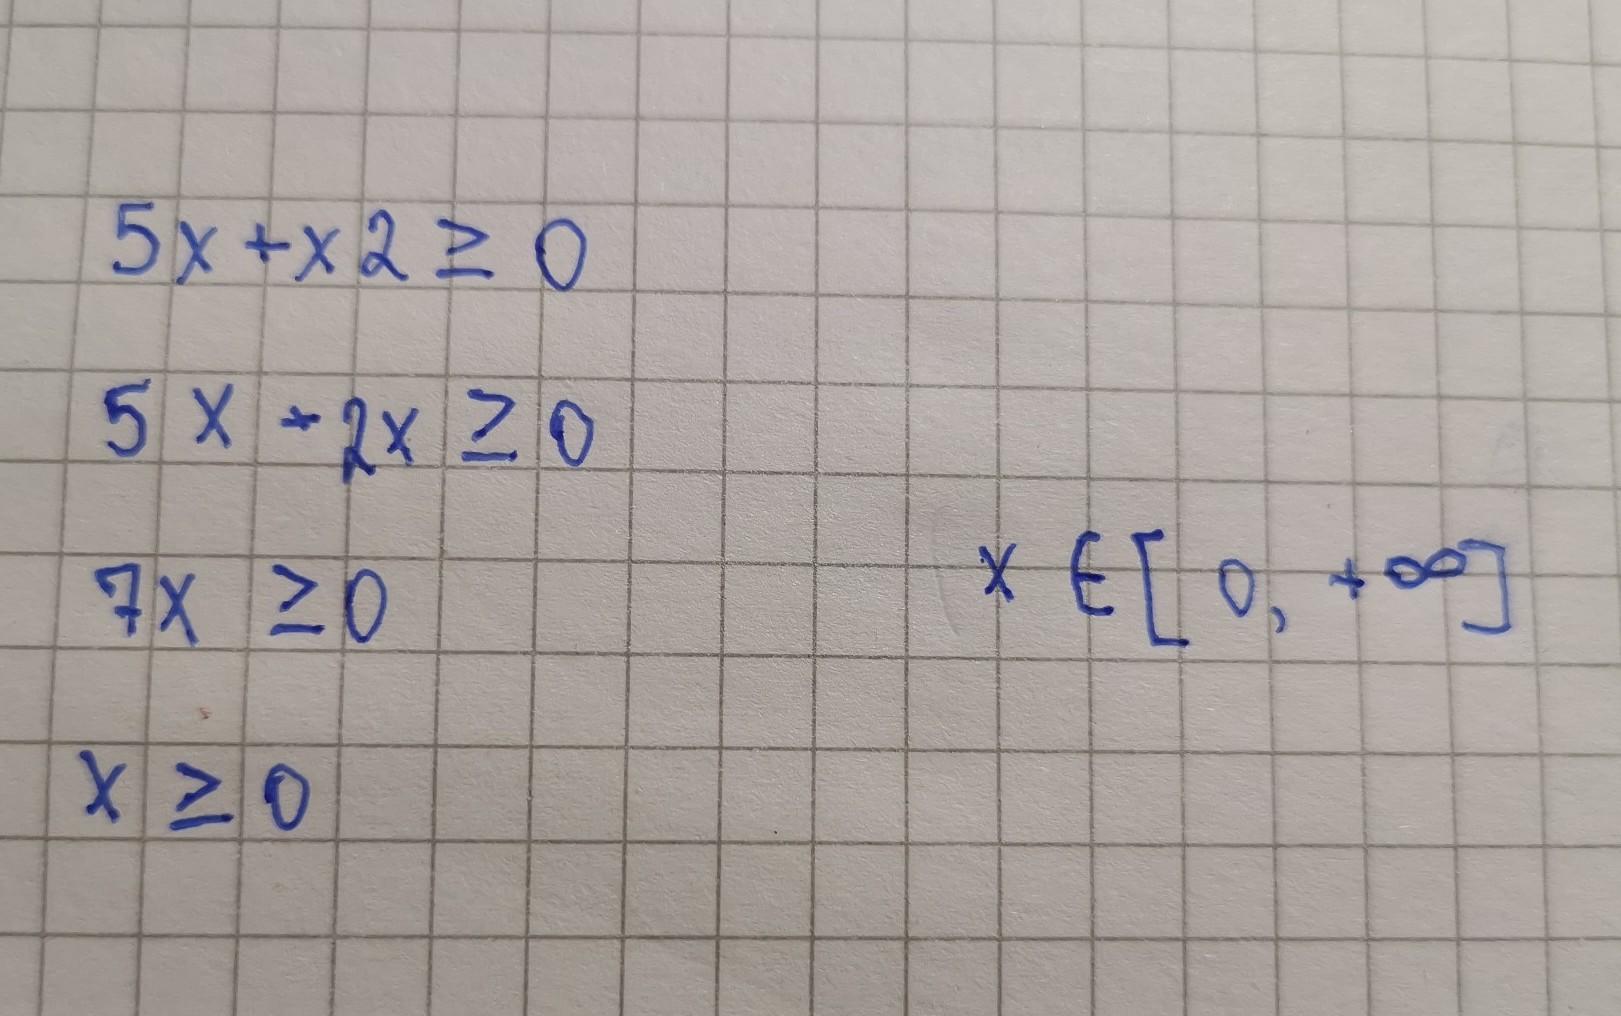 5x+x2≥0
5x+2x≥0
7x≥0
x∈[0,+∞]
x≥0